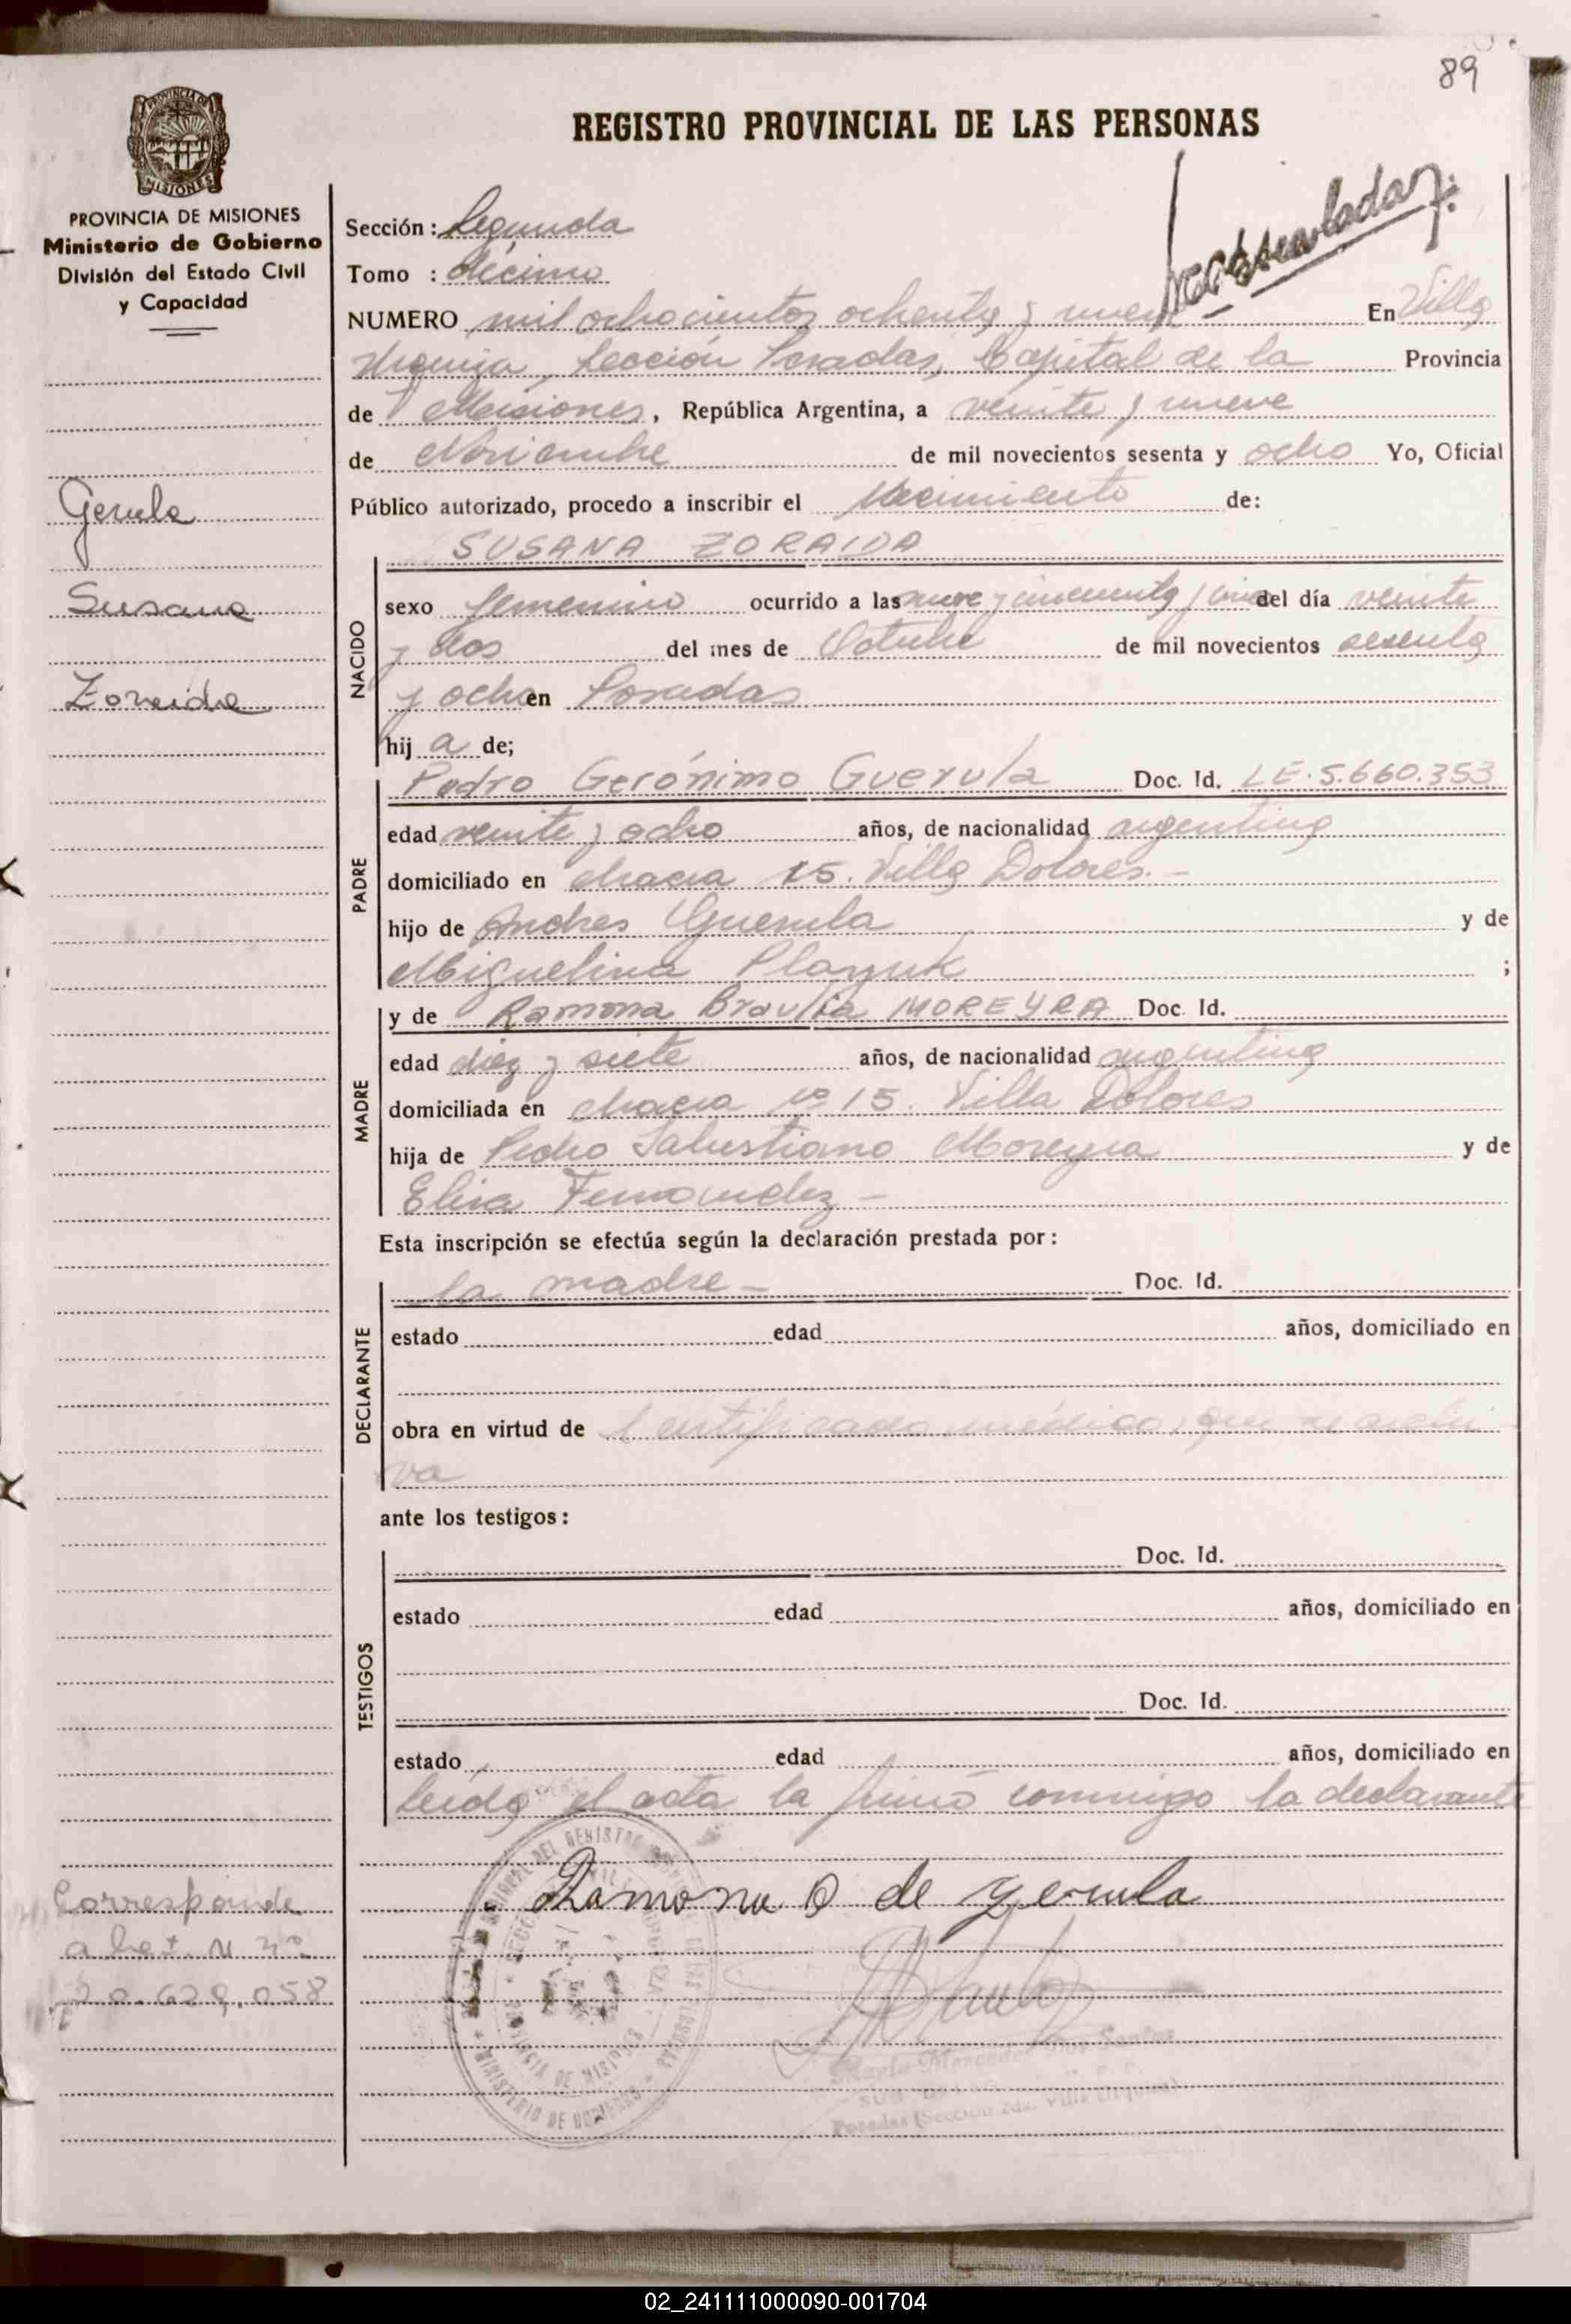 89
REGISTRO PROVINCIAL DE LAS PERSONAS
MISIONES
PROVINCIA DE MISIONES
Ministerio de Gobierno
División del Estado Civil
y Capacidad
Gerula
Susana
Zoraida
Sección: Segunda
Tomo : décimo
NUMERO mil ochocientos ochenta y nueve En Villa
Urquiza, Sección Posadas, Capital de la Provincia
de Misiones, República Argentina, a veinte y nueve
de Noviembre de mil novecientos sesenta y ocho Yo, Oficial
Público autorizado, procedo a inscribir el Nacimiento de:
SUSANA ZORAIDA
NACIDO
sexo femenino ocurrido a las nueve y cincuenta y cinco del día veinte
y dos del mes de Octubre de mil novecientos sesenta
y ocho en Posadas
hij a de;
PADRE
Pedro Gerónimo Guerula Doc. Id. LE.5.660.353
edad veinte y ocho años, de nacionalidad argentina
domiciliado en chacra 15. Villa Dolores.-
hijo de Andres Guerula y de
Miguelina Plazuk ;
MADRE
y de Ramona Braulia MOREYRA Doc. Id.
edad diez y siete años, de nacionalidad argentina
domiciliada en chacra nº 15. Villa Dolores
hija de Pedro Salustiano Moreyra y de
Elisa Fernandez -
Esta inscripción se efectúa según la declaración prestada por:
DECLARANTE
la madre - Doc. Id.
estado edad años, domiciliado en
obra en virtud de Certificado médico, que se archi-
va
ante los testigos:
TESTIGOS
Doc. Id.
estado edad años, domiciliado en
Doc. Id.
estado edad años, domiciliado en
leida el acta la firmó conmigo la declarante
Ramona de Gerula
Corresponde
a Mat. Nº
20.629.058
MINISTERIO DE GOBIERNO
PROVINCIA DE MISIONES
Mercedes Dos Santos
Posadas (Sección 2da. Villa Urquiza)
02_241111000090-001704